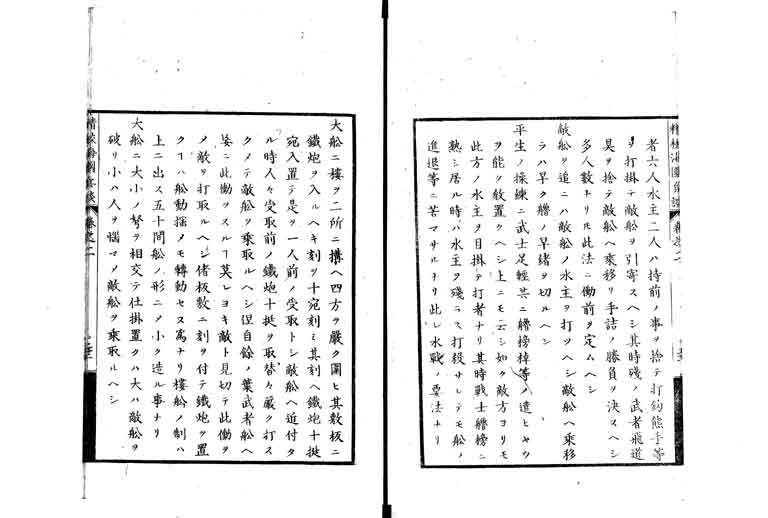 者六人水主二人ハ持前ノ事ヲ捨テ打鈎熊手等
ヲ打掛テ敵舩ヲ引寄スヘシ其時殘ノ武者飛道
具ヲ捨テ敵舩ヘ乗移リ手詰ノ勝負ヲ決スヘシ
多人數ナリトモ此法ニ働前ヲ定ムヘシ
敵舩ヲ追ニハ敵舩ノ水主ヲ打ツヘシ敵舩ヘ乗移
ラハ早ク艪ノ早緒ヲ切ルヘシ
平生ノ操練ニ武士足輕共ニ艪榜棹等ヲ遣ヒヤウ
ヲ能ク教置クヘシ上ニモ云シ如ク敵方ヨリモ
此方ノ水主ヲ目掛テ打者ナリ其時戰士艪榜ニ
熟シ居ル時ハ水主ヲ殘ラス打殺サレテモ舩ノ
進退等ニ苦マサルナリ此レ水戰ノ要法ナリ
大舩ニ樓ヲ二所ニ搆ヘ四方ヲ嚴ク圍ヒ其敷板ニ
鐵炮ヲ入ルヘキ刻ヲ十宛刻ミ其刻ヘ鐵炮十挺
宛入置テ是ヲ一人前ノ受取トシ敵舩ヘ近付タ
ル時人々受取前ノ鐵炮十挺ヲ取替々嚴ク打ス
クメテ敵舩ヲ乗取ルヘシ但自餘ノ葉武者舩ヘ
妄ニ此働ヲスルヿ莫レヨキ敵ト見切テ此働ヲ
ノ敵ヲ打取ルヘシ偖板數ニ刻ヲ付テ鐵炮ヲ置
クヿハ舩動揺メモ轉動セヌ爲ナリ樓舩ノ制ハ
上ニ出ス五十間舩ノ形ニノ小ク造ル事ナリ
大舩ニ大小ノ弩ヲ相交テ仕掛置クハ大ハ敵舩ヲ
破リ小ハ人ヲ惱マメ敵舩ヲ乗取ルヘシ